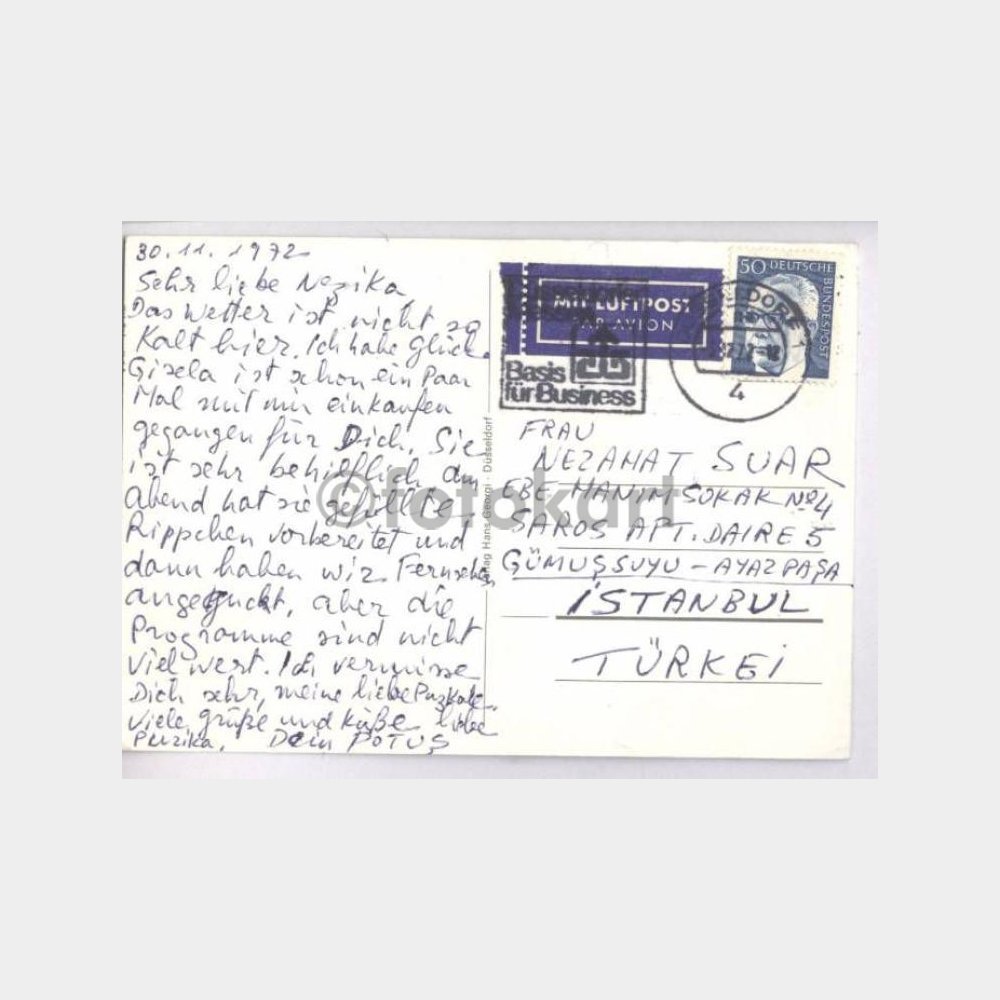 30.11.1972
Sehr liebe Nezika
Das Wetter ist nicht so
Kalt hier. Ich habe glück.
Gisela ist schon ein Paar
Mal mit mir einkaufen
gegangen für Dich. Sie
ist sehr behilflich am
Abend hat sie
Rippchen vorbereitet und
dann haben wir Fernsehen
angeguckt, aber die
Programme sind nicht
viel wert. Ich vermisse
Dich sehr, meine liebe
Viele grüße und Küße liebe
Puzika, Dein POTUŞ
Verlag Hans Georgi - Düsseldorf
MIT LUFTPOST
PAR AVION
Basis
für Business
50 DEUTSCHE
BUNDESPOST
DORF 1
4
FRAU
NEZAHAT SUAR
EBE HANIM SOKAK No 4
SAROS APT. DAIRE 5
GÜMUŞSUYU - AYAZPAŞA
İSTANBUL
TÜRKEİ
©fotokart